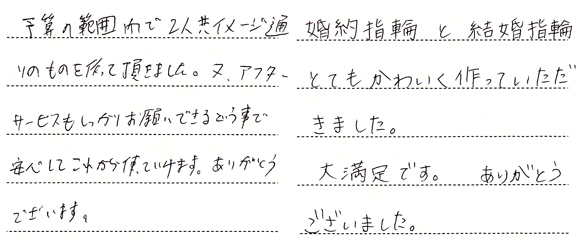 予算の範囲内で2人共イメージ通
りのものを作って頂きました。又、アフター
サービスもしっかりお願いできるという事で
安心してこれから使っていけます。ありがとう
ございます。
婚約指輪 と 結婚指輪
とてもかわいく作っていただ
きました。
大満足です。 ありがとう
ございました。